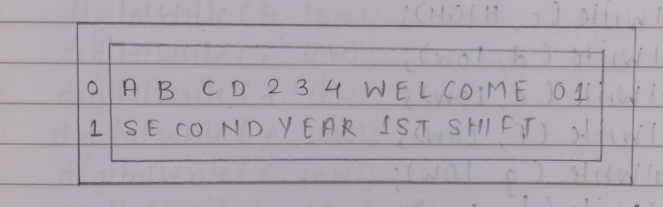 0 ABCD234 WELCOME 01
1 SECOND YEAR 1ST SHIFT